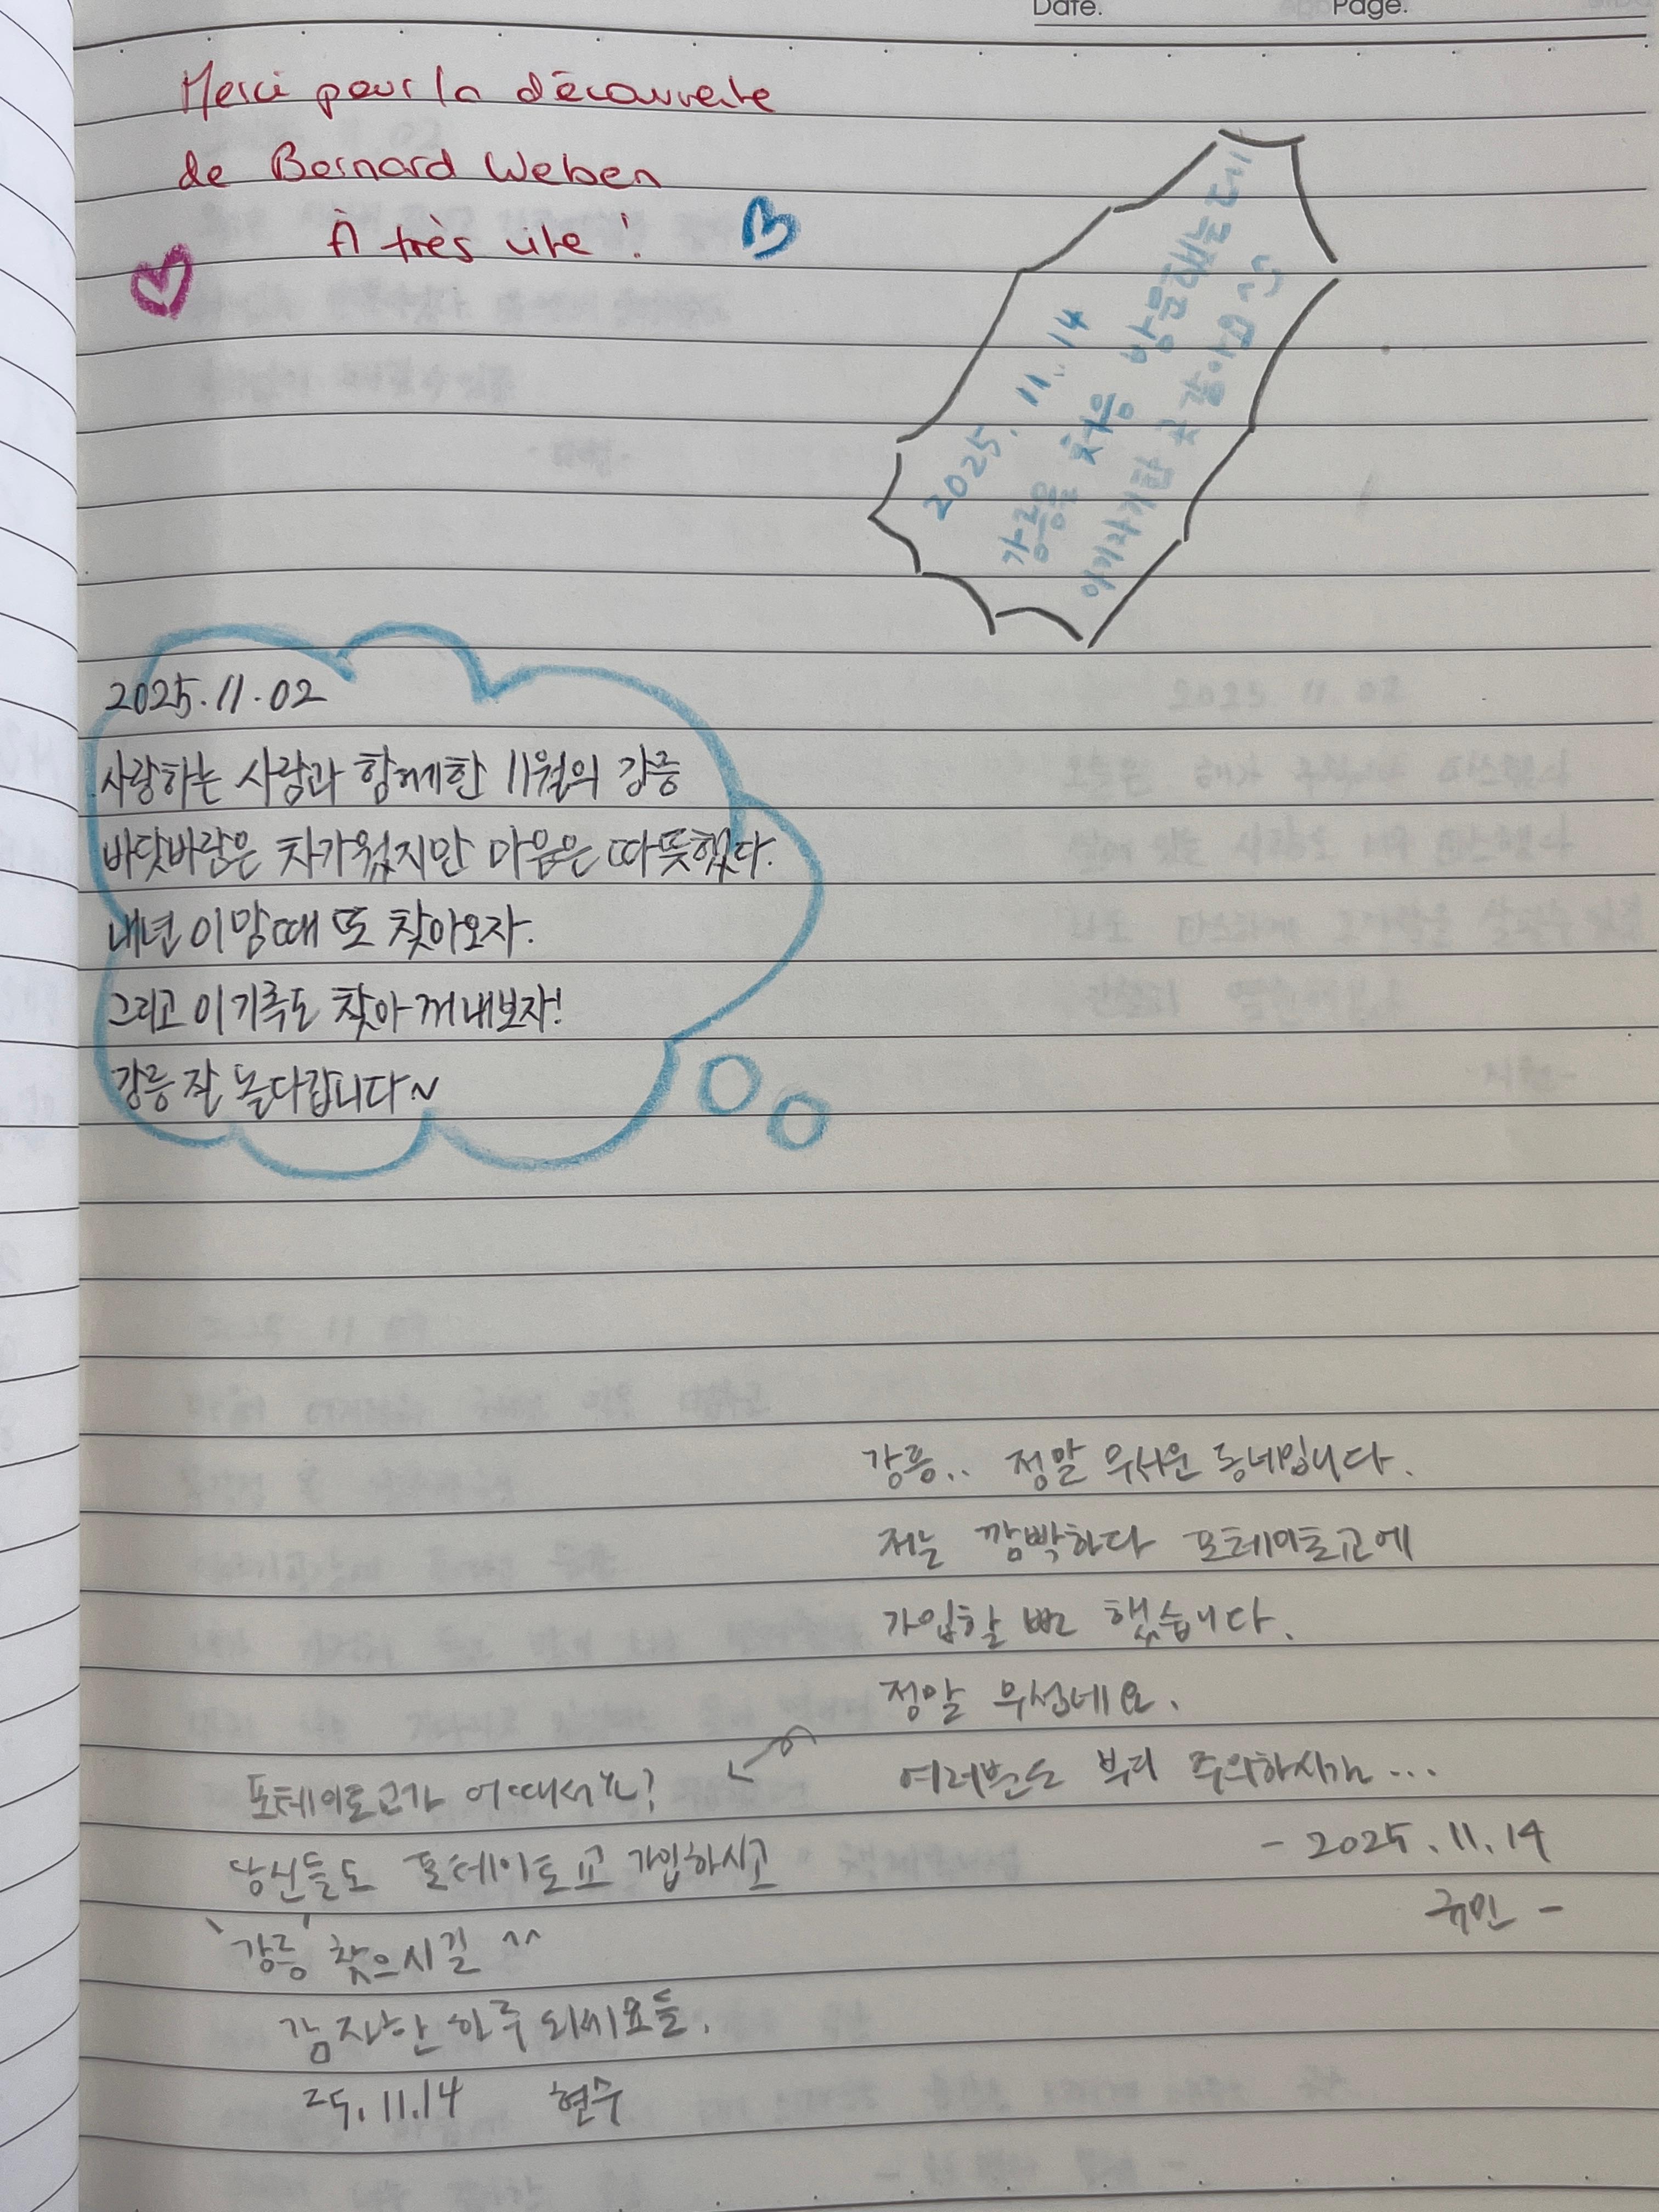 Date.
Page.
Merci pour la découverte
de Bernard Weben
À très vite !
2025. 11. 14
강릉을 처음 방문했는데
이까지가 곳 같아염 ^^
2025.11.02
사랑하는 사람과 함께한 11월의 강릉
바닷바람은 차가웠지만 마음은 따뜻했다.
내년 이맘때 또 찾아오자.
그리고 이 기록도 찾아 꺼내보자!
강릉 잘 놀다갑니다~
강릉.. 정말 무서운 동네입니다.
저는 깜빡하다 포테이토교에
가입할 뻔 했습니다.
정말 무섭네요.
여러분도 부디 주의하시길...
- 2025.11.14
규민 -
포테이토교가 어때서!?
당신들도 포테이토교 가입하시고
'강릉' 찾으시길 ^^
감자한 하루 되세요들.
25.11.14 현수